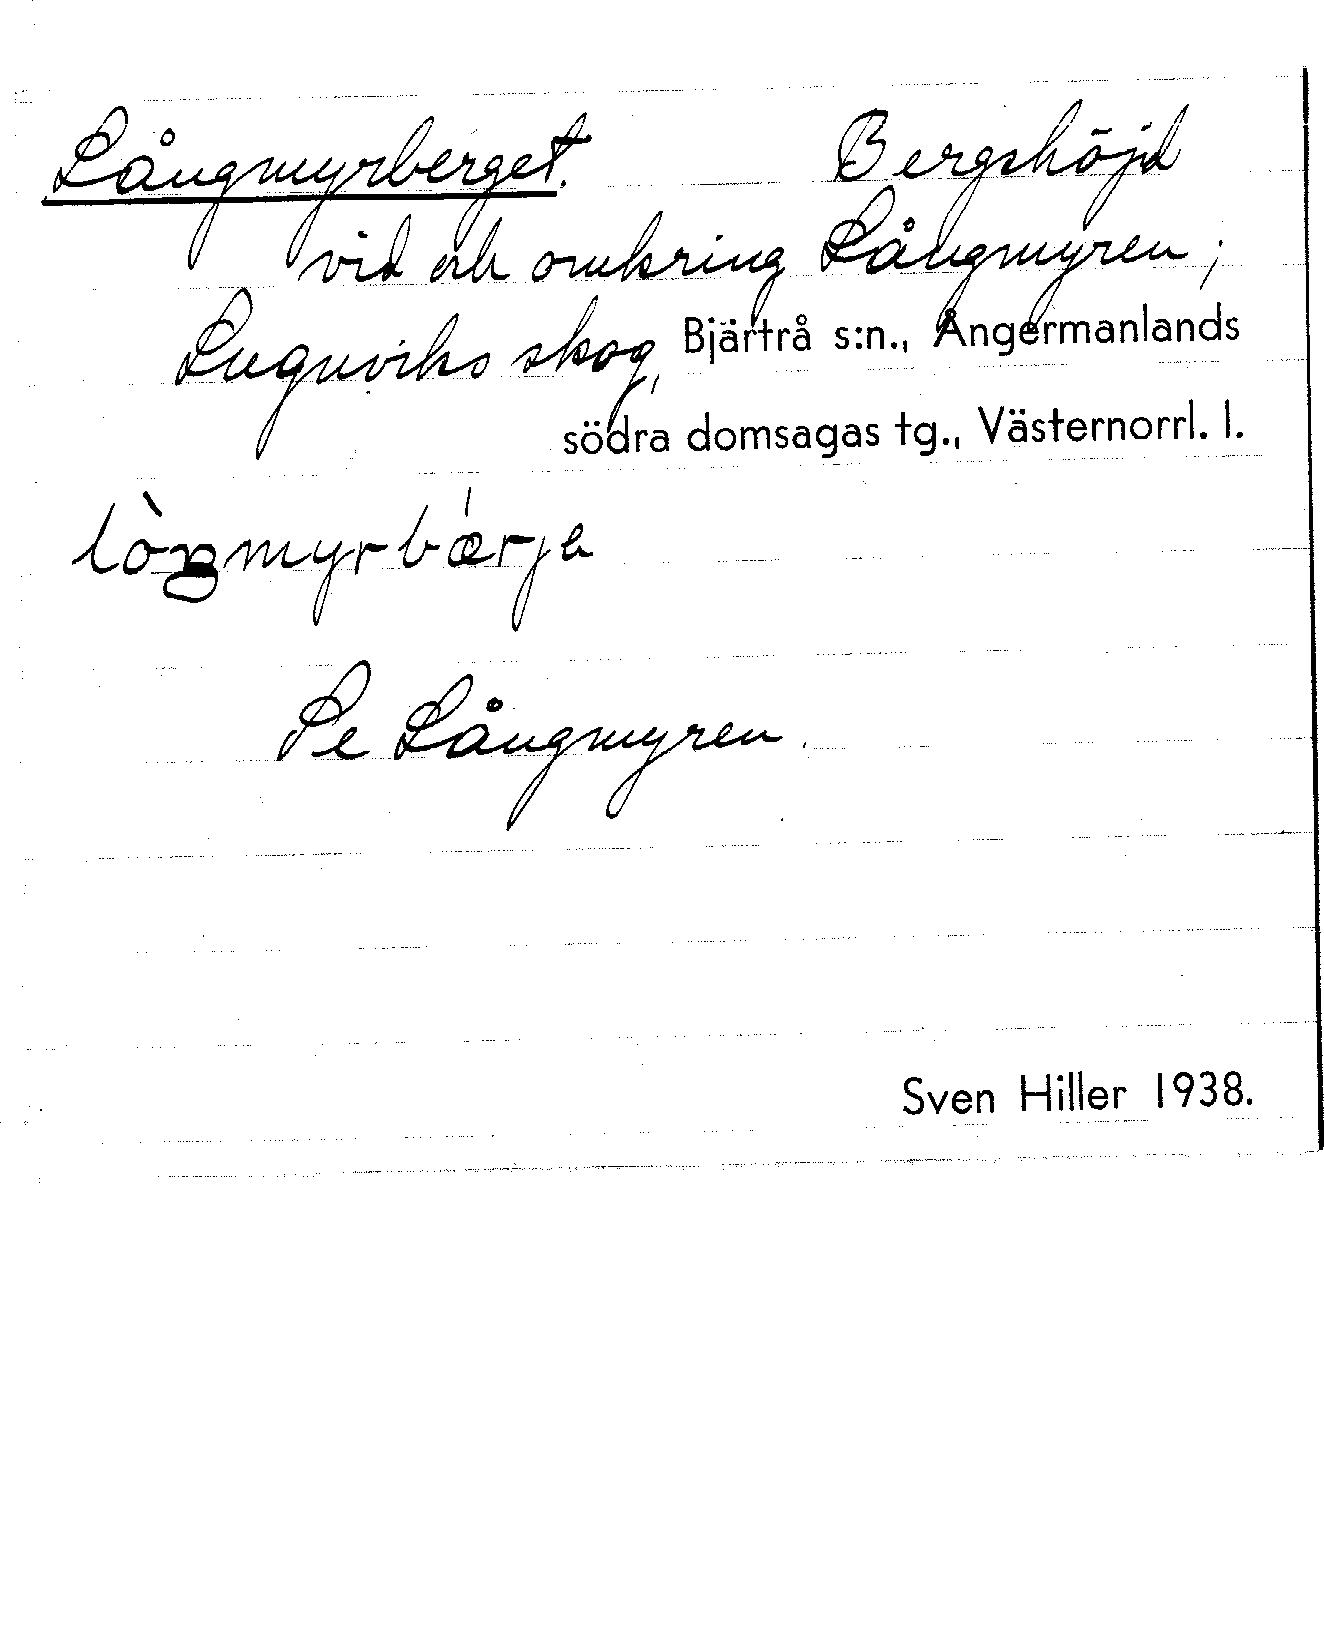 Långmyrberget. Bergshöjd
vid och omkring Långmyren;
Lugnviks skog, Bjärtrå s:n., Ångermanlands
södra domsagas tg., Västernorrl. l.
lòŋmyrbǽrjə
Se Långmyren.
Sven Hiller 1938.